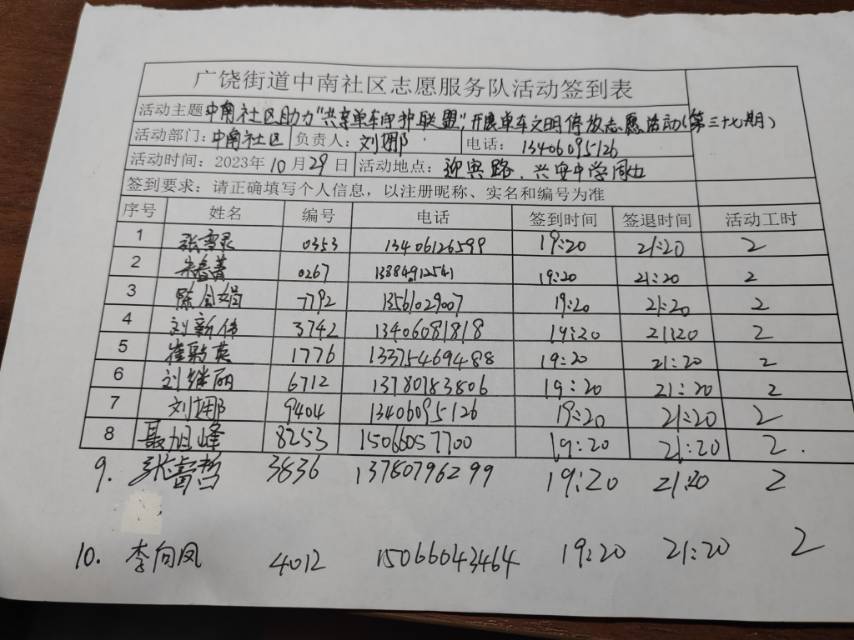 广饶街道中南社区志愿服务队活动签到表
活动主题 中南社区助力"共享单车守护联盟"开展单车文明停放志愿活动(第三十七期)
活动部门: 中南社区 负责人: 刘娜 电话: 13406095126
活动时间: 2023年10月29日 活动地点: 迎宾路、兴安中学周边
签到要求: 请正确填写个人信息，以注册昵称、实名和编号为准
序号 姓名 编号 电话 签到时间 签退时间 活动工时
1 0353 13406126599 19:20 21:20 2
2 0267 13884912541 19:20 21:20 2
3 7792 13561029007 19:20 21:20 2
4 刘新伟 3742 13406081818 19:20 21:20 2
5 1776 13375469488 19:20 21:20 2
6 刘继丽 6712 13780183806 19:20 21:20 2
7 刘娜 9404 13406095126 19:20 21:20 2
8 聂旭峰 8253 15066057700 19:20 21:20 2.
9. 张睿哲 3836 13780796299 19:20 21:20 2
10. 李向凤 4012 15066043464 19:20 21:20 2